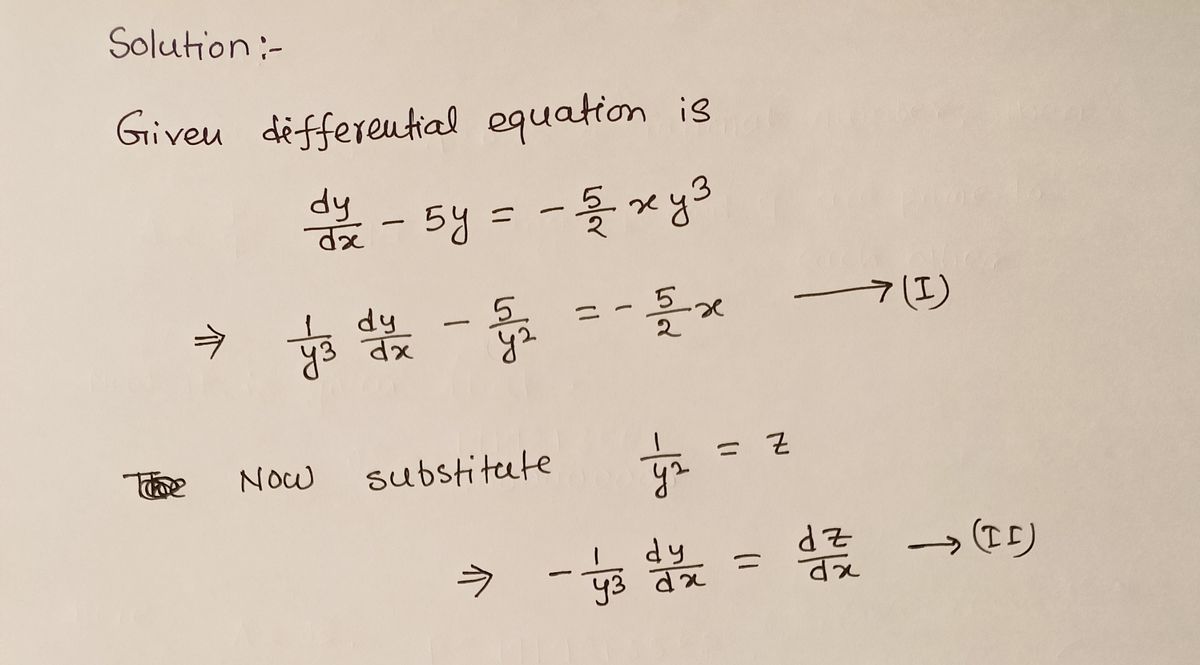 Solution :-
Given differential equation is
dy/dx - 5y = - 5/2 x y³
⇒ 1/y³ dy/dx - 5/y² = - 5/2 x ⟶ (I)
Now substitute 1/y² = z
⇒ - 1/y³ dy/dx = dz/dx → (II)